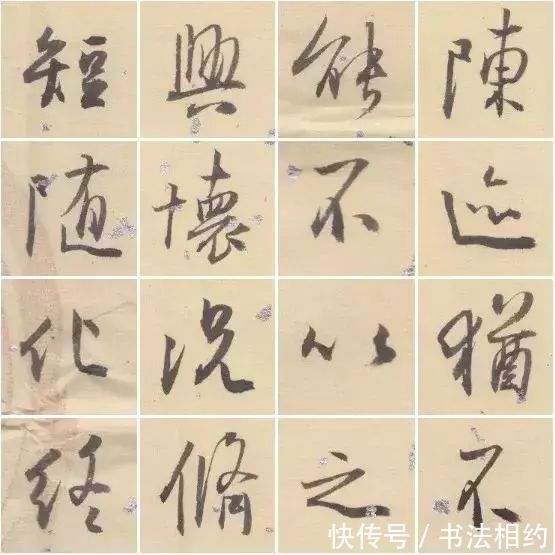 陳迹猶不
能不以之
興懷況脩
短随化終
快传号／书法相约